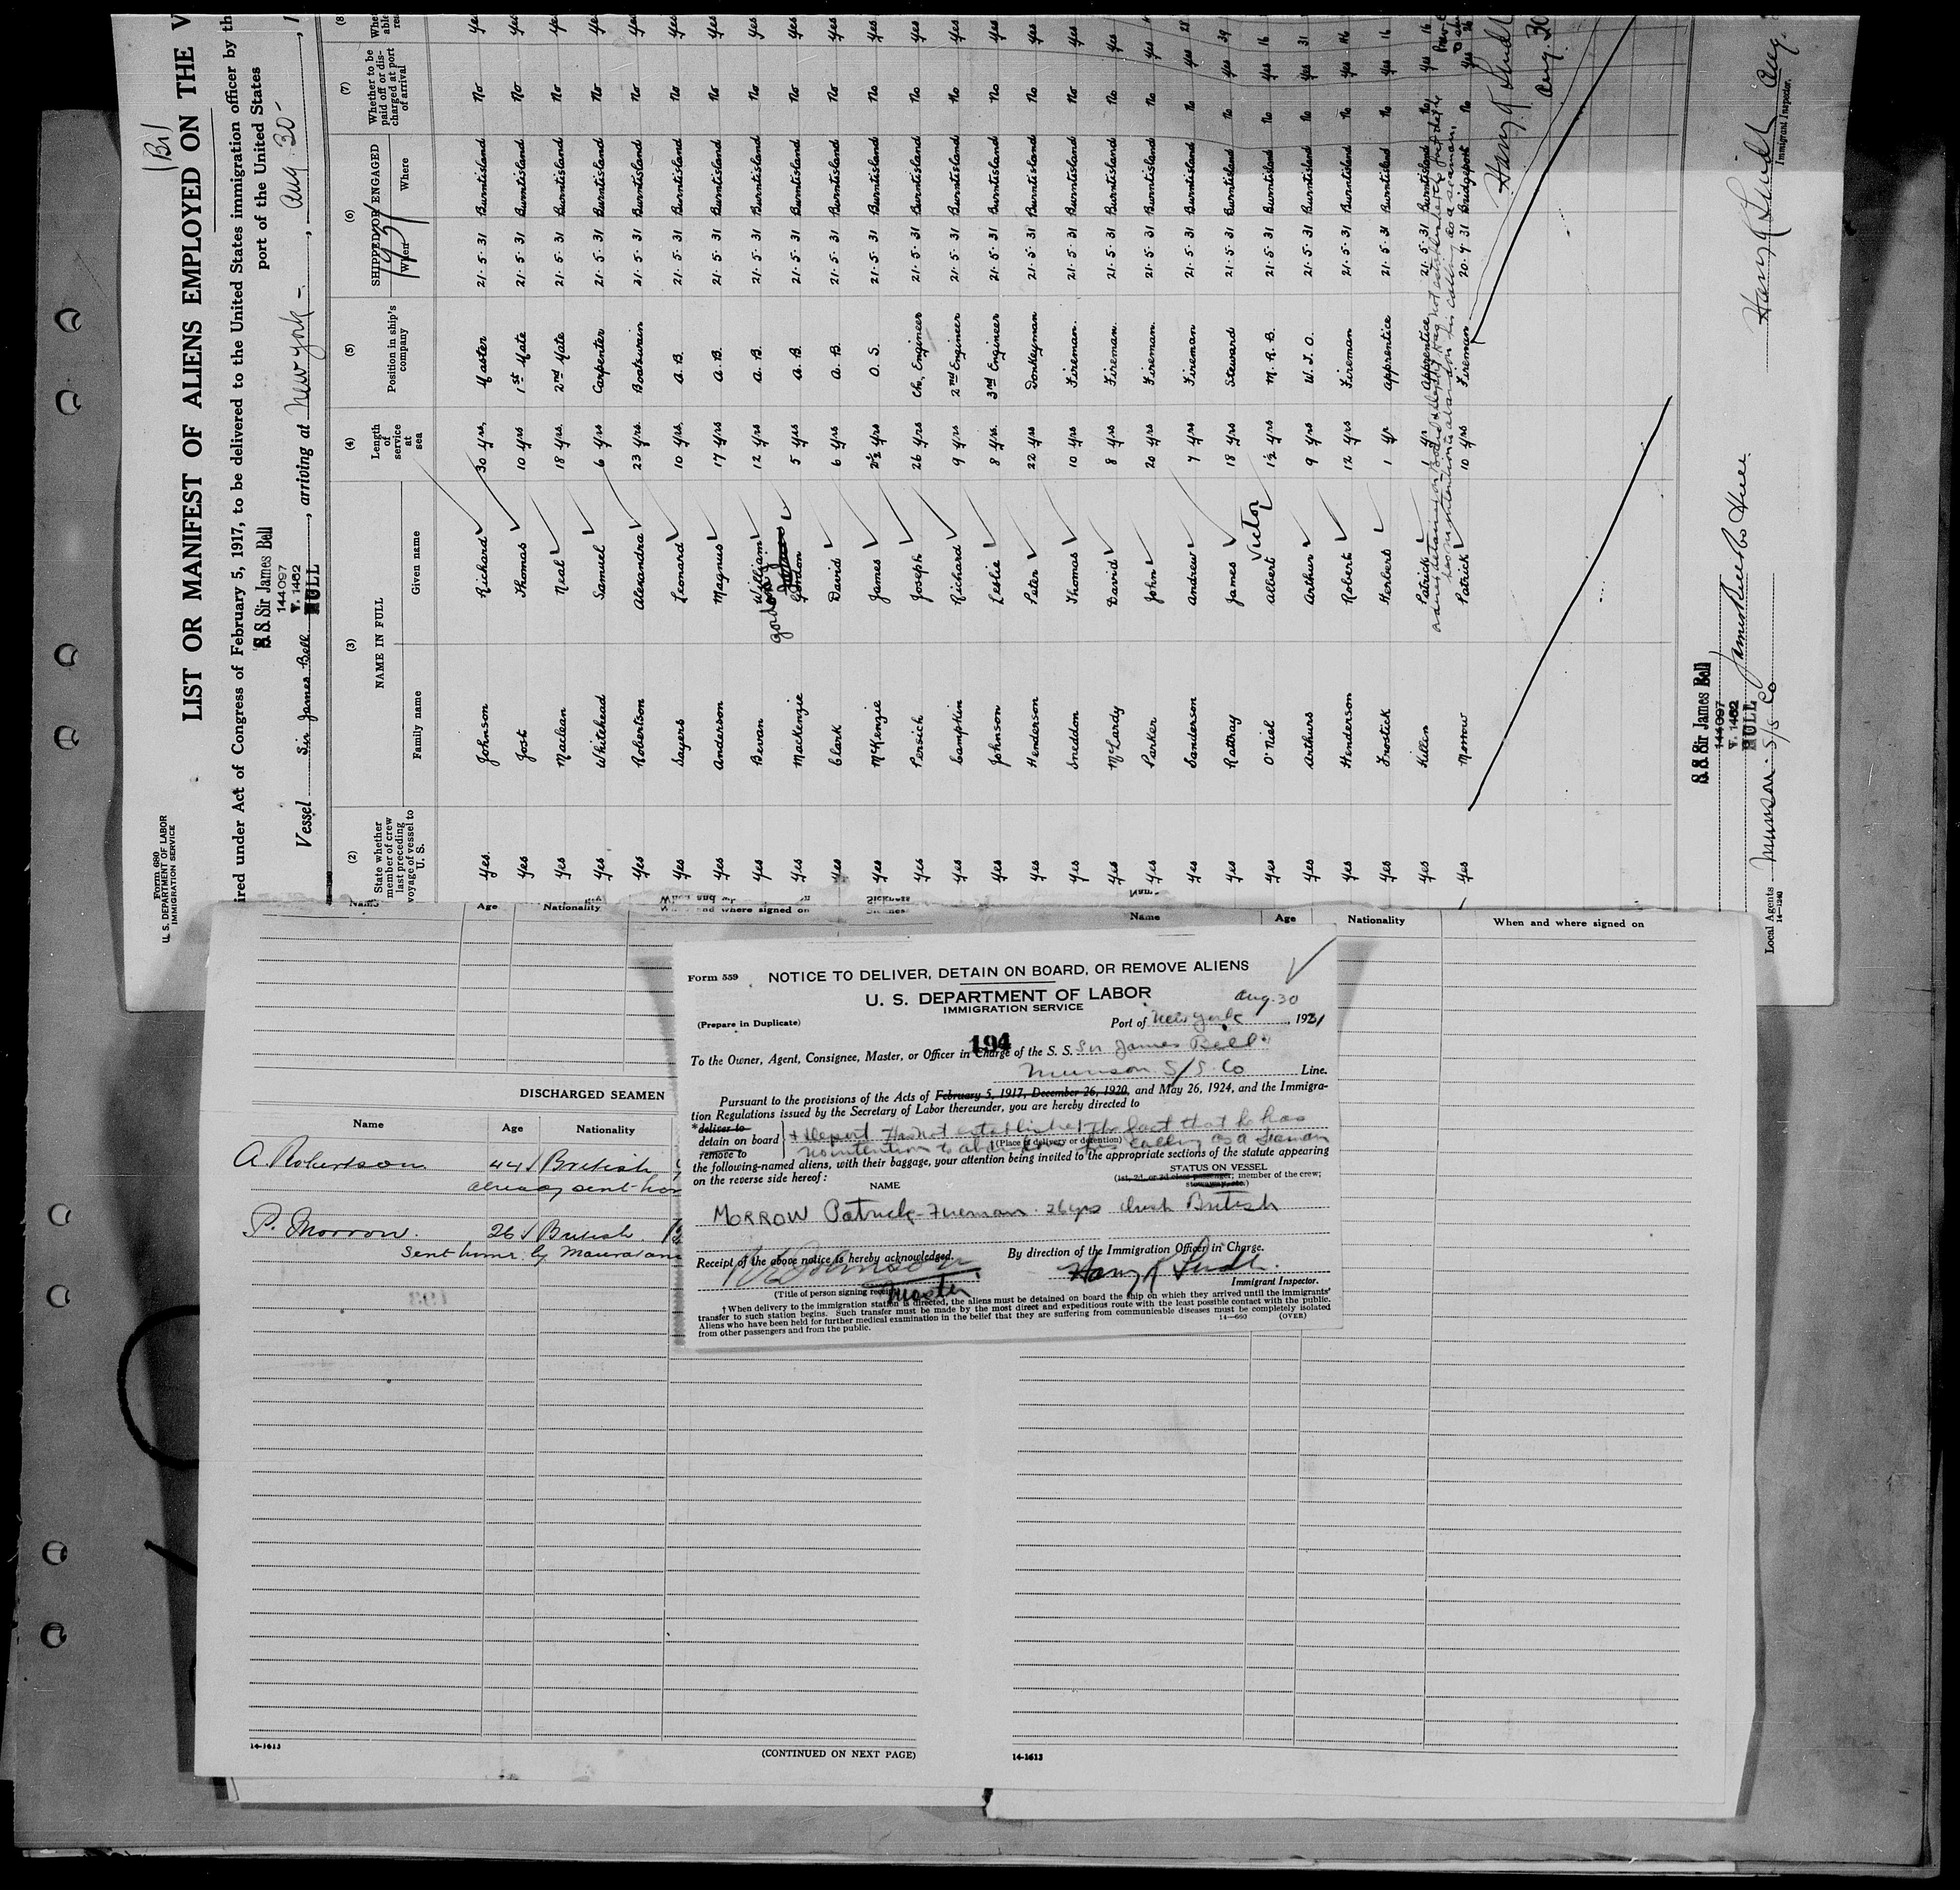 Form 680
U. S. DEPARTMENT OF LABOR
IMMIGRATION SERVICE
(Br)
LIST OR MANIFEST OF ALIENS EMPLOYED ON THE V
ired under Act of Congress of February 5, 1917, to be delivered to the United States immigration officer by th
port of the United States
S.S. Sir James Bell
144097
T. 1462
HULL
Vessel Sir James Bell, arriving at New York -, Aug. 30-, 1
1931
(2) (3) (4) (5) (6) (7) (8
State whether member of crew last preceding voyage of vessel to U. S.
NAME IN FULL
Family name Given name
Length of service at sea
Position in ship's company
SHIPPED OR ENGAGED
When Where
Whether to be paid off or discharged at port of arrival
Yes. Johnson Richard 30 yrs. Master 21.5.31 Burntisland No Yes
Yes Jost Thomas 10 yrs 1st Mate 21.5.31 Burntisland No Yes
Yes Maclean Neal 18 yrs. 2nd Mate 21.5.31 Burntisland No Yes
Yes Whitehead Samuel 6 yrs Carpenter 21.5.31 Burntisland No Yes
Yes Robertson Alexandra 23 yrs. Boatswain 21.5.31 Burntisland No Yes
Yes Sayers Leonard 10 yrs. A.B. 21.5.31 Burntisland No Yes
Yes Anderson Magnus 17 yrs A.B. 21.5.31 Burntisland No Yes
Yes Bevan William 12 yrs A.B. 21.5.31 Burntisland No Yes
Yes Mackenzie Gordon 5 yrs A.B. 21.5.31 Burntisland No Yes
Yes Clark David 6 yrs A.B. 21.5.31 Burntisland No Yes
Yes McKenzie James 2½ yrs O.S. 21.5.31 Burntisland No Yes
Yes Persich Joseph 26 yrs Ch. Engineer 21.5.31 Burntisland No Yes
Yes Campkin Richard 9 yrs 2nd Engineer 21.5.31 Burntisland No Yes
Yes Johnson Leslie 8 yrs. 3rd Engineer 21.5.31 Burntisland No Yes
Yes Henderson Peter 22 yrs Donkeyman 21.5.31 Burntisland No Yes
Yes Sneddon Thomas 10 yrs Fireman. 21.5.31 Burntisland No Yes
Yes McLardy David 8 yrs Fireman. 21.5.31 Burntisland No Yes
Yes Parker John 20 yrs Fireman. 21.5.31 Burntisland No Yes
Yes Sanderson Andrew 7 yrs Fireman 21.5.31 Burntisland No Yes 28
Yes Rattray James 18 yrs Steward 21.5.31 Burntisland No Yes 39
Yes O'Niel Albert Victor 1½ yrs M.R.B. 21.5.31 Burntisland No Yes 16
Yes Arthurs Arthur 9 yrs W.J.O. 21.5.31 Burntisland No Yes 31
Yes Henderson Robert 12 yrs Fireman 21.5.31 Burntisland No Yes
Yes Frostick Herbert 1 yr apprentice 21.5.31 Burntisland No Yes 16
Yes Killin Patrick 1 yr Apprentice 21.5.31 Burntisland No Yes 16
Yes Morrow Patrick 10 yrs Fireman. 20.4.31 Bridgeport No Yes 26
Aug. 30
S.S. Sir James Bell
144097
T. 1462
HULL
Local Agents Munson S/S Co
14—1240
Immigrant Inspector.
Name Age Nationality When and where signed on
Sickness
Name Age Nationality When and where signed on
DISCHARGED SEAMEN
Name Age Nationality
A. Robertson 44 British
already sent hom
P. Morrow. 26 British
Sent home by Mauratania
14-1613
(CONTINUED ON NEXT PAGE)
14-1613
Form 559
NOTICE TO DELIVER, DETAIN ON BOARD, OR REMOVE ALIENS
U. S. DEPARTMENT OF LABOR
IMMIGRATION SERVICE
(Prepare in Duplicate)
Aug. 30
Port of New York, 1931
194
To the Owner, Agent, Consignee, Master, or Officer in Charge of the S. S. Sir James Bell
Munson S/S Co Line.
Pursuant to the provisions of the Acts of February 5, 1917, December 26, 1920, and May 26, 1924, and the Immigra-
tion Regulations issued by the Secretary of Labor thereunder, you are hereby directed to
*deliver to
detain on board
remove to
+ Deport Has not established the fact that he has
(Place of delivery or detention)
no intention to abandon his calling as a seaman
the following-named aliens, with their baggage, your attention being invited to the appropriate sections of the statute appearing
on the reverse side hereof:
STATUS ON VESSEL
(1st, 2d, or 3d class passenger; member of the crew;
stowaway, etc.)
NAME
MORROW Patrick - Fireman - 26 yrs Irish British
Receipt of the above notice is hereby acknowledged.
By direction of the Immigration Officer in Charge.
Master
(Title of person signing receipt)
Immigrant Inspector.
†When delivery to the immigration station is directed, the aliens must be detained on board the ship on which they arrived until the immigrants'
transfer to such station begins. Such transfer must be made by the most direct and expeditious route with the least possible contact with the public.
Aliens who have been held for further medical examination in the belief that they are suffering from communicable diseases must be completely isolated
from other passengers and from the public.
14—660 (OVER)